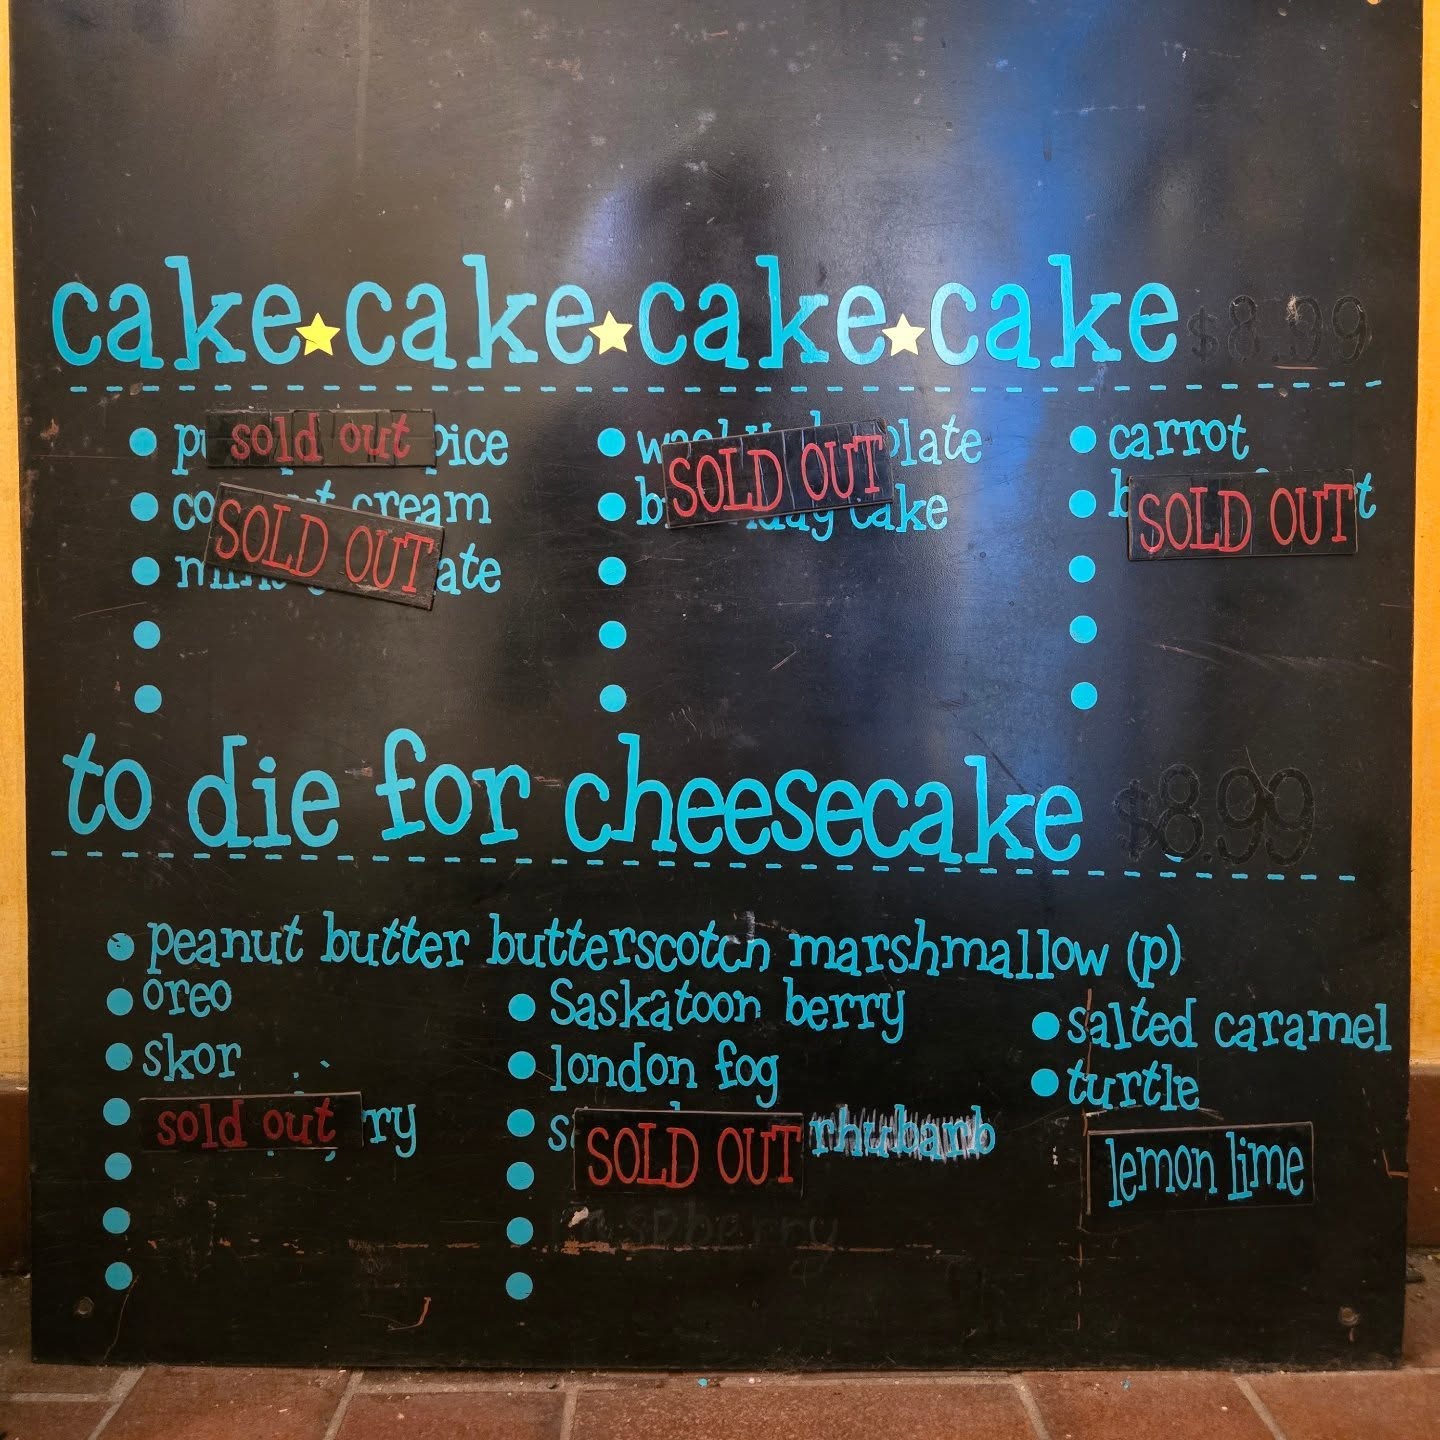 cake cake cake cake $8.99
sold out
SOLD OUT
cream
SOLD OUT
cake
carrot
SOLD OUT
to die for cheesecake $8.99
peanut butter butterscotch marshmallow (p)
oreo
skor
sold out
Saskatoon berry
london fog
SOLD OUT rhubarb
raspberry
salted caramel
turtle
lemon lime